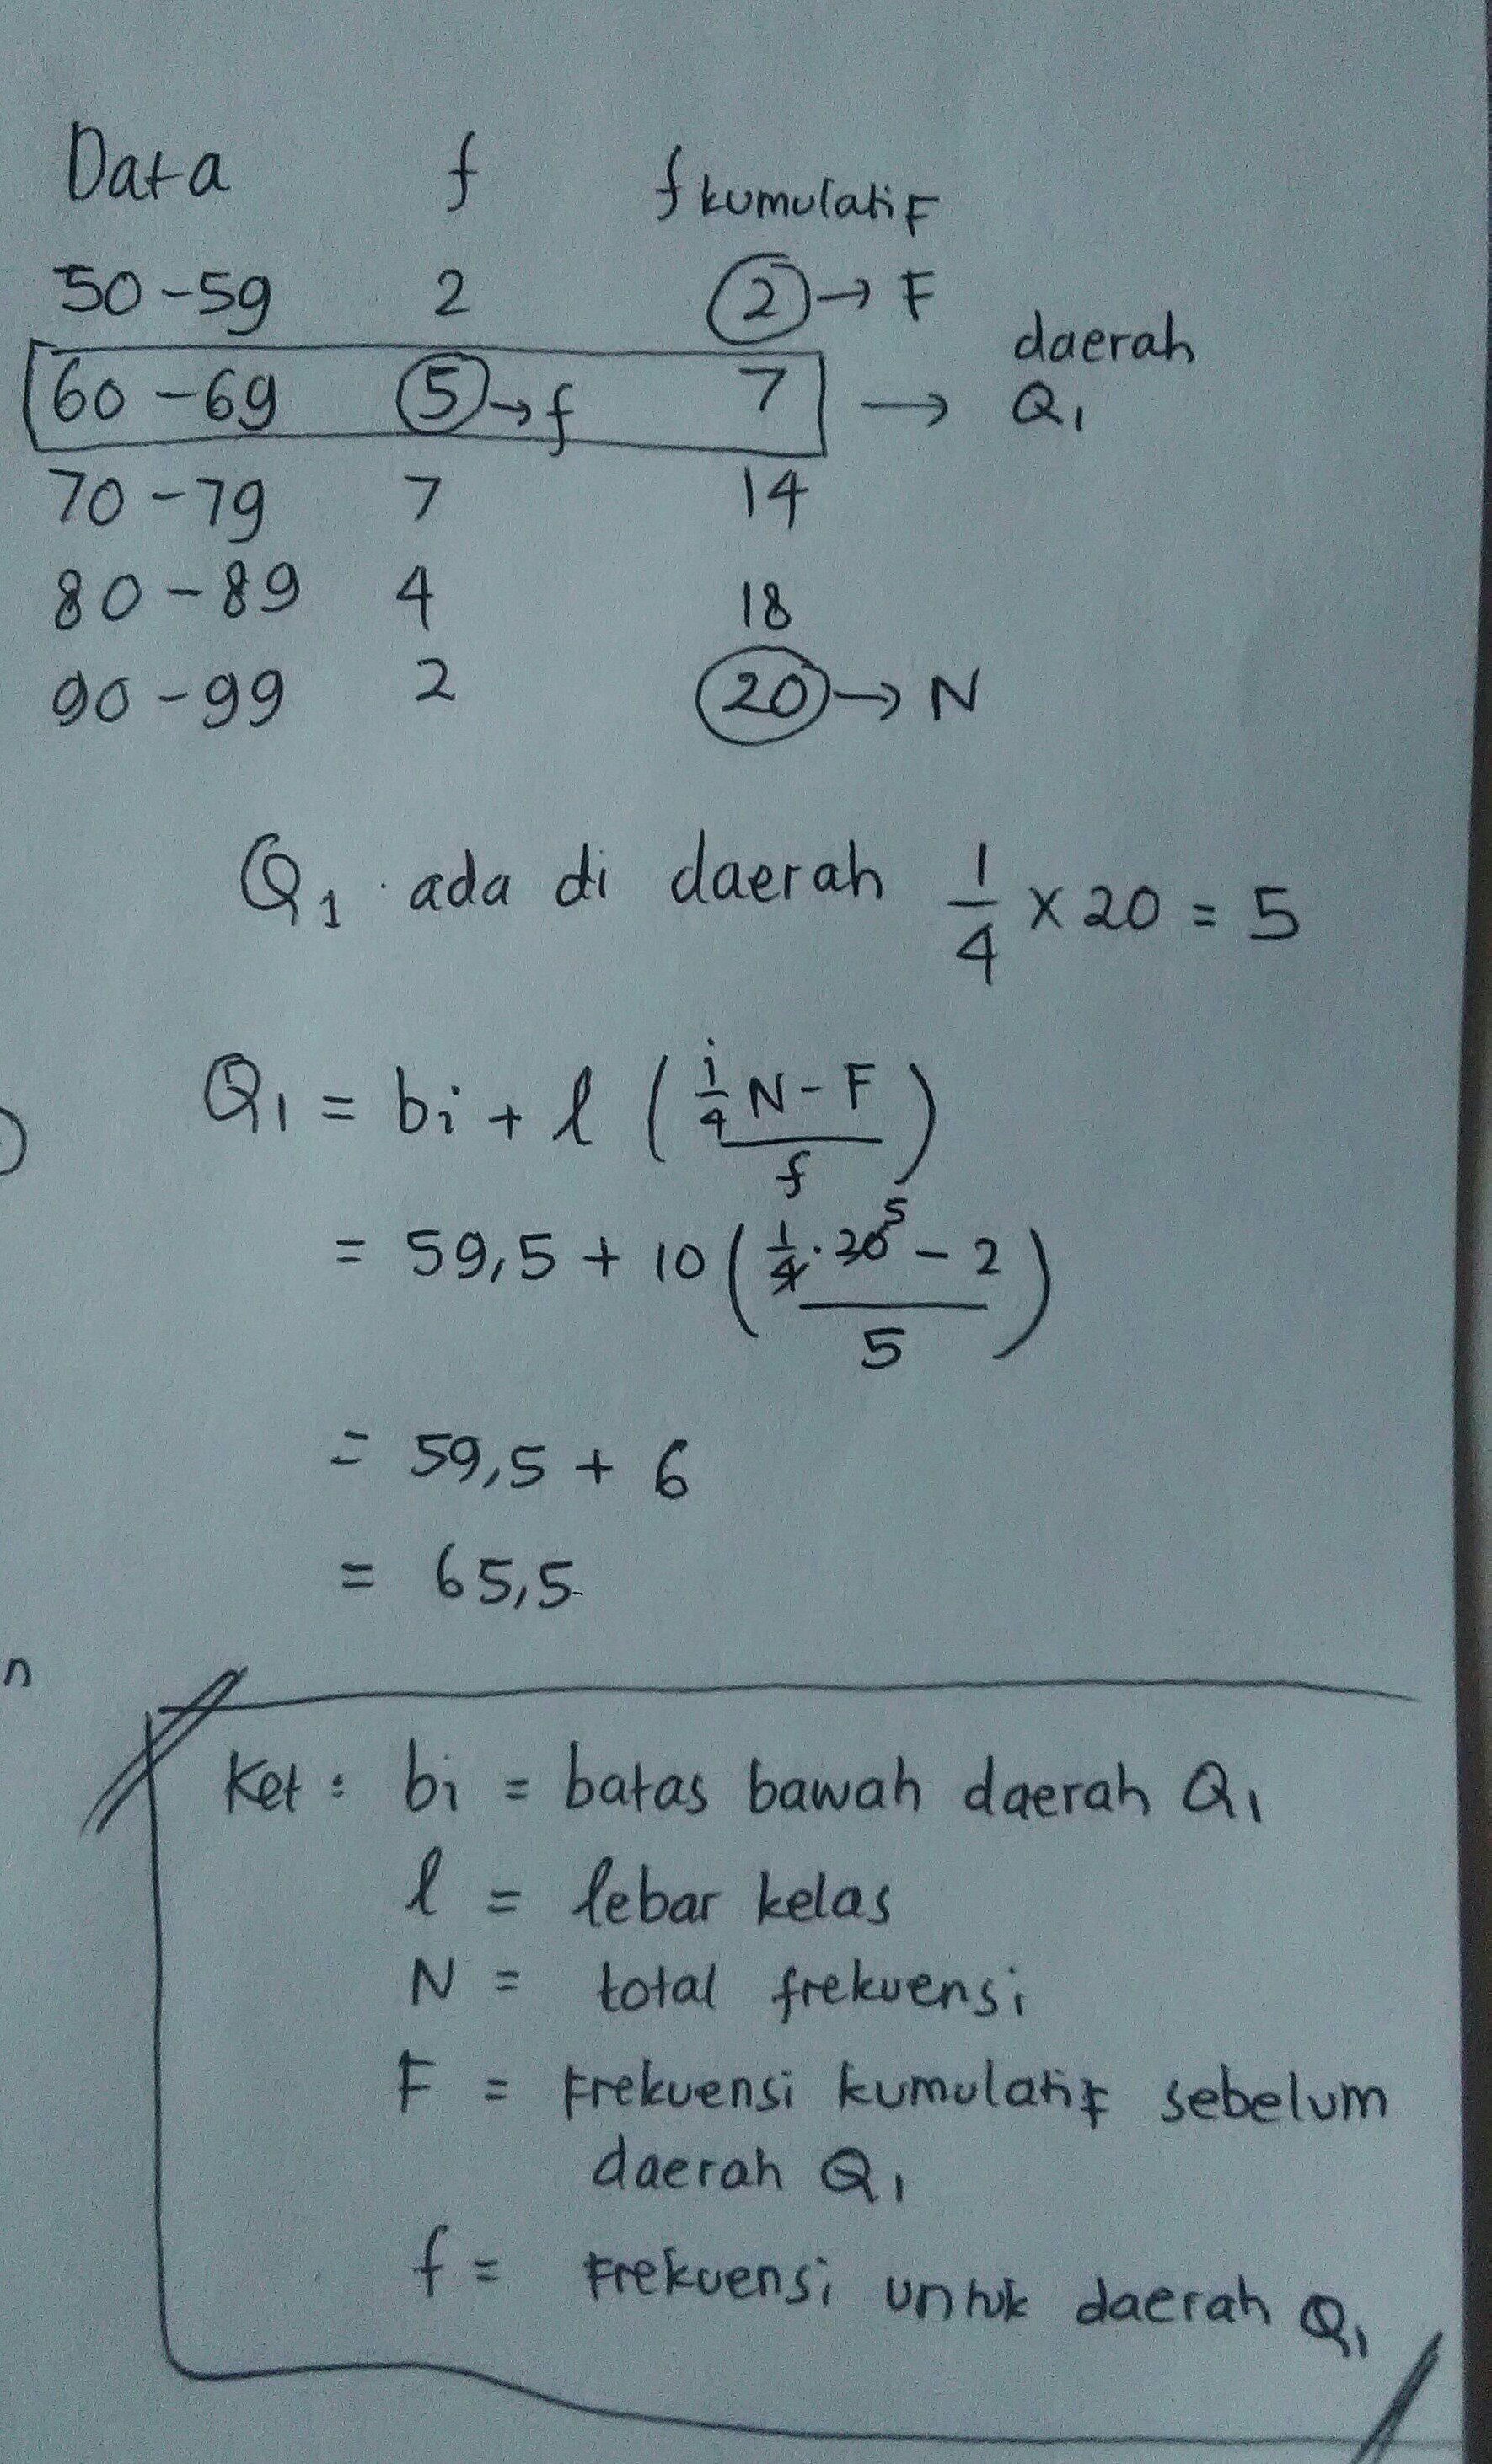 Data f f kumulatif
50 - 59 2 2 → F
60 - 69 5 → f 7 → daerah Q1
70 - 79 7 14
80 - 89 4 18
90 - 99 2 20 → N
Q1 ada di daerah 1/4 x 20 = 5
Q1 = bi + l ( (i/4 N - F) / f )
= 59,5 + 10 ( (1/4 . 20 5 - 2) / 5 )
= 59,5 + 6
= 65,5
n
Ket : bi = batas bawah daerah Q1
l = lebar kelas
N = total frekuensi
F = Frekuensi kumulatif sebelum
daerah Q1
f = Frekuensi untuk daerah Q1